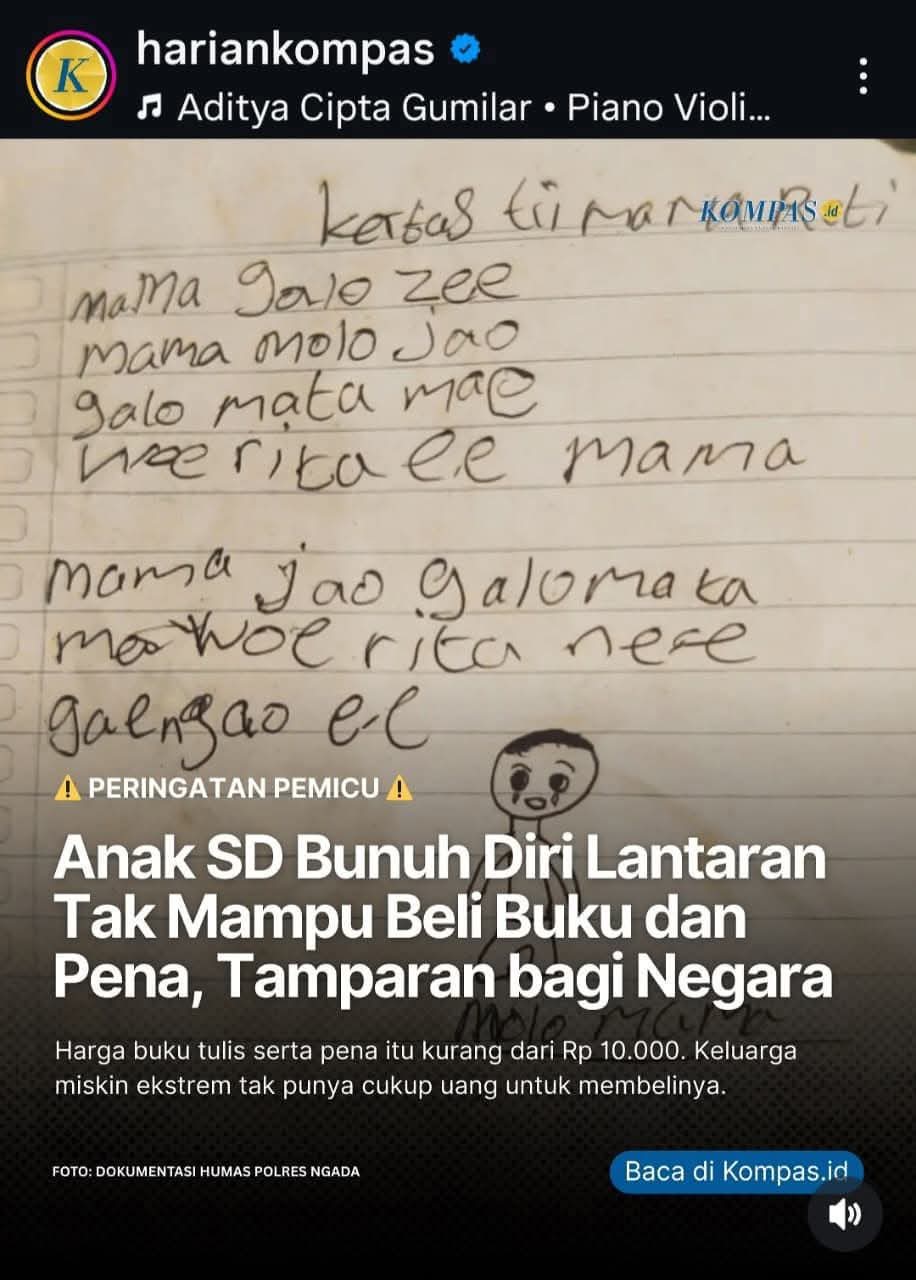 hariankompas
Aditya Cipta Gumilar • Piano Violi...
kertas tii mama Reti
KOMPAS.id
mama galo zee
mama molo jao
galo mata mae
woe rita ee mama
mama jao galo mata
mae woe rita nee
gaengao ee
⚠️ PERINGATAN PEMICU ⚠️
Anak SD Bunuh Diri Lantaran
Tak Mampu Beli Buku dan
Pena, Tamparan bagi Negara
molo mama
Harga buku tulis serta pena itu kurang dari Rp 10.000. Keluarga
miskin ekstrem tak punya cukup uang untuk membelinya.
FOTO: DOKUMENTASI HUMAS POLRES NGADA
Baca di Kompas.id